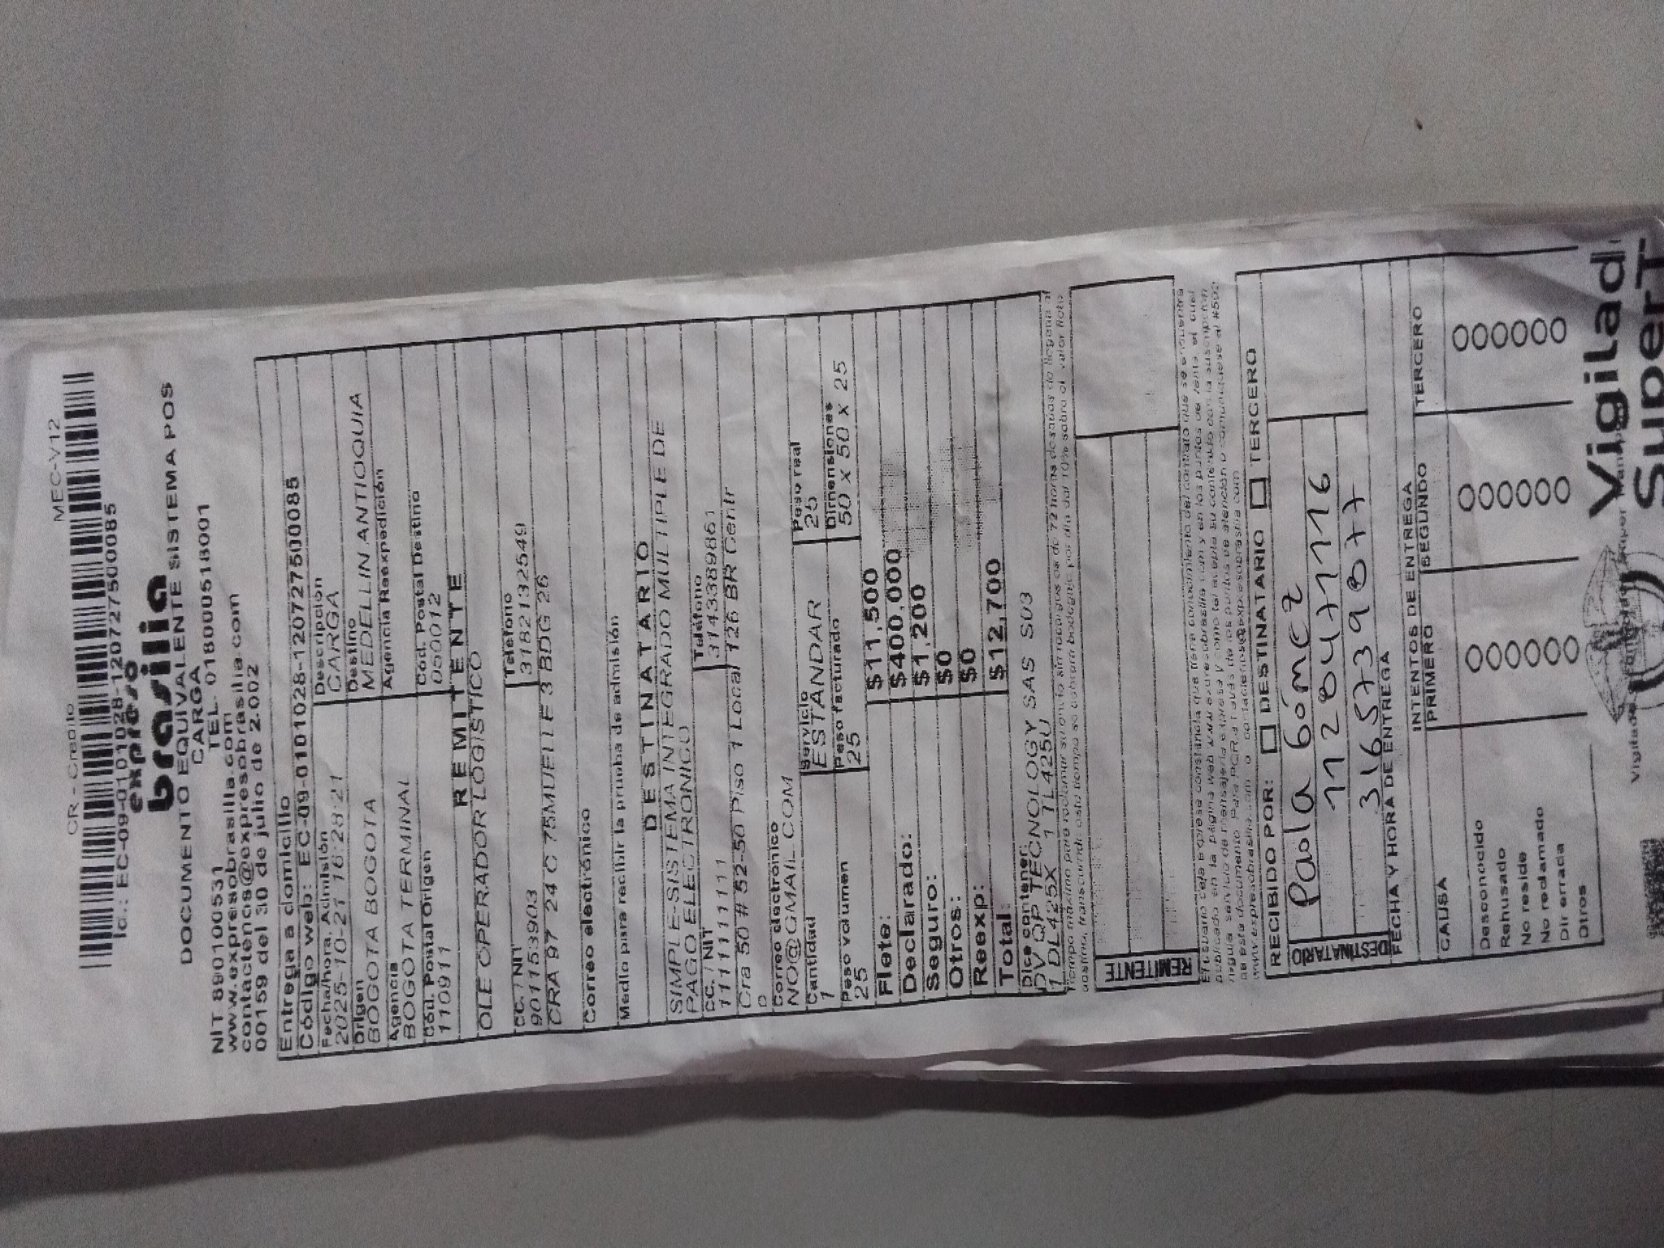 CR - Credito MEC-V12
Id.: EC-09-0101028-120727500085
expreso
brasilia
DOCUMENTO EQUIVALENTE SISTEMA POS
CARGA
NIT 890100531 TEL. 018000518001
www.expresobrasilia.com
contactenos@expresobrasilia.com
00159 del 30 de julio de 2.002
Entrega a domicilio
Código web: EC-09-0101028-120727500085
Fecha/hora. Admisión Descripción
2025-10-21 16:28:21 CARGA
Origen Destino
BOGOTA BOGOTA MEDELLIN ANTIOQUIA
Agencia Agencia Reexpedición
BOGOTA TERMINAL
Cód. Postal Origen Cód. Postal Destino
110911 050012
REMITENTE
OLE OPERADOR LOGISTICO
CC. / NIT Teléfono
901153903 3182132549
CRA 97 24 C 75MUELLE 3 BDG 26
Correo electrónico
Medio para recibir la prueba de admisión
DESTINATARIO
SIMPLE-SISTEMA INTEGRADO MULTIPLE DE
PAGO ELECTRONICO
CC. / NIT Teléfono
11111111111 3143389861
Cra 50 # 52-50 Piso 1 Local 126 BR Centr
o
Correo electrónico
NO@GMAIL.COM
Cantidad Servicio Peso real
1 ESTANDAR 25
Peso volumen Peso facturado Dimensiones
25 25 50 x 50 x 25
Flete: $11,500
Declarado: $400,000
Seguro: $1,200
Otros: $0
Reexp: $0
Total: $12,700
Dice contener:
DV QP TECNOLOGY SAS S03
1 DL425X 1 TL425U
REMITENTE
RECIBIDO POR: DESTINATARIO TERCERO
DESTINATARIO
Paola Gómez
1128047116
3165739077
FECHA Y HORA DE ENTREGA
INTENTOS DE ENTREGA
CAUSA PRIMERO SEGUNDO TERCERO
Desconocido
Rehusado
No reside
No reclamado
Dir errada
Otros
Vigilad
SuperT